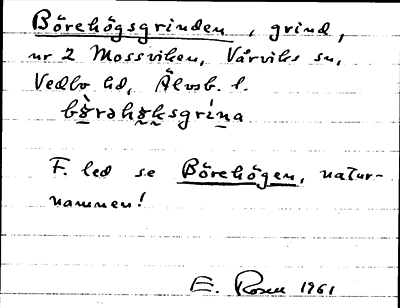 Börehögsgrinden, grind,
nr 2 Mossviken, Vårviks sn,
Vedbo hd, Älvsb. l.
bö̀rəhö̠k̠sgrín̠a
F. led se Börehögen, natur-
namnen!
E. Rosell 1961